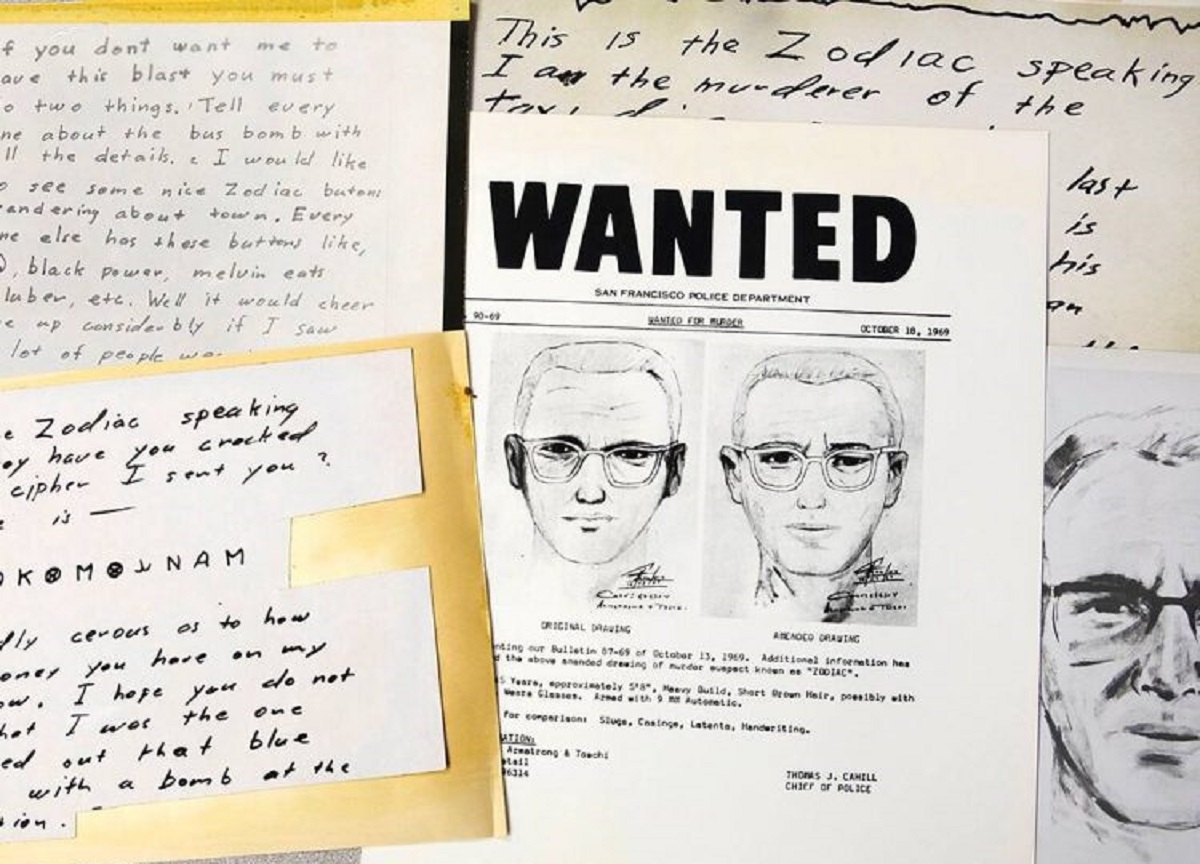 f you dont want me to
ave this blast you must
o two things. Tell every
ne about the bus bomb with
ll the details. I would like
o see some nice Zodiac butons
andering about town. Every
ne else has these buttons like,
, black power, melvin eats
luber, etc. Well it would cheer
e up considerbly if I saw
lot of people
e Zodiac speaking
oy have you cracked
cipher I sent you ?
e is —
K⊗M⊗ NAM
ly cerous as to how
oney you have on my
ow. I hope you do not
hat I was the one
ed out that blue
with a bomb at the
ion.
This is the Zodiac speaking
I am the murderer of the
last
is
his
an
WANTED
SAN FRANCISCO POLICE DEPARTMENT
90-69 WANTED FOR MURDER OCTOBER 18, 1969
ORIGINAL DRAWING AMENDED DRAWING
nting our Bulletin 87-69 of October 13, 1969. Additional information has
d the above amended drawing of murder suspect known as "ZODIAC".
5 Years, approximately 5'8", Heavy Build, Short Brown Hair, possibly with
Wears Glasses. Armed with 9 MM Automatic.
for comparison: Slugs, Casings, Latents, Handwriting.
ATION:
Armstrong & Toschi
etail
THOMAS J. CAHILL
CHIEF OF POLICE